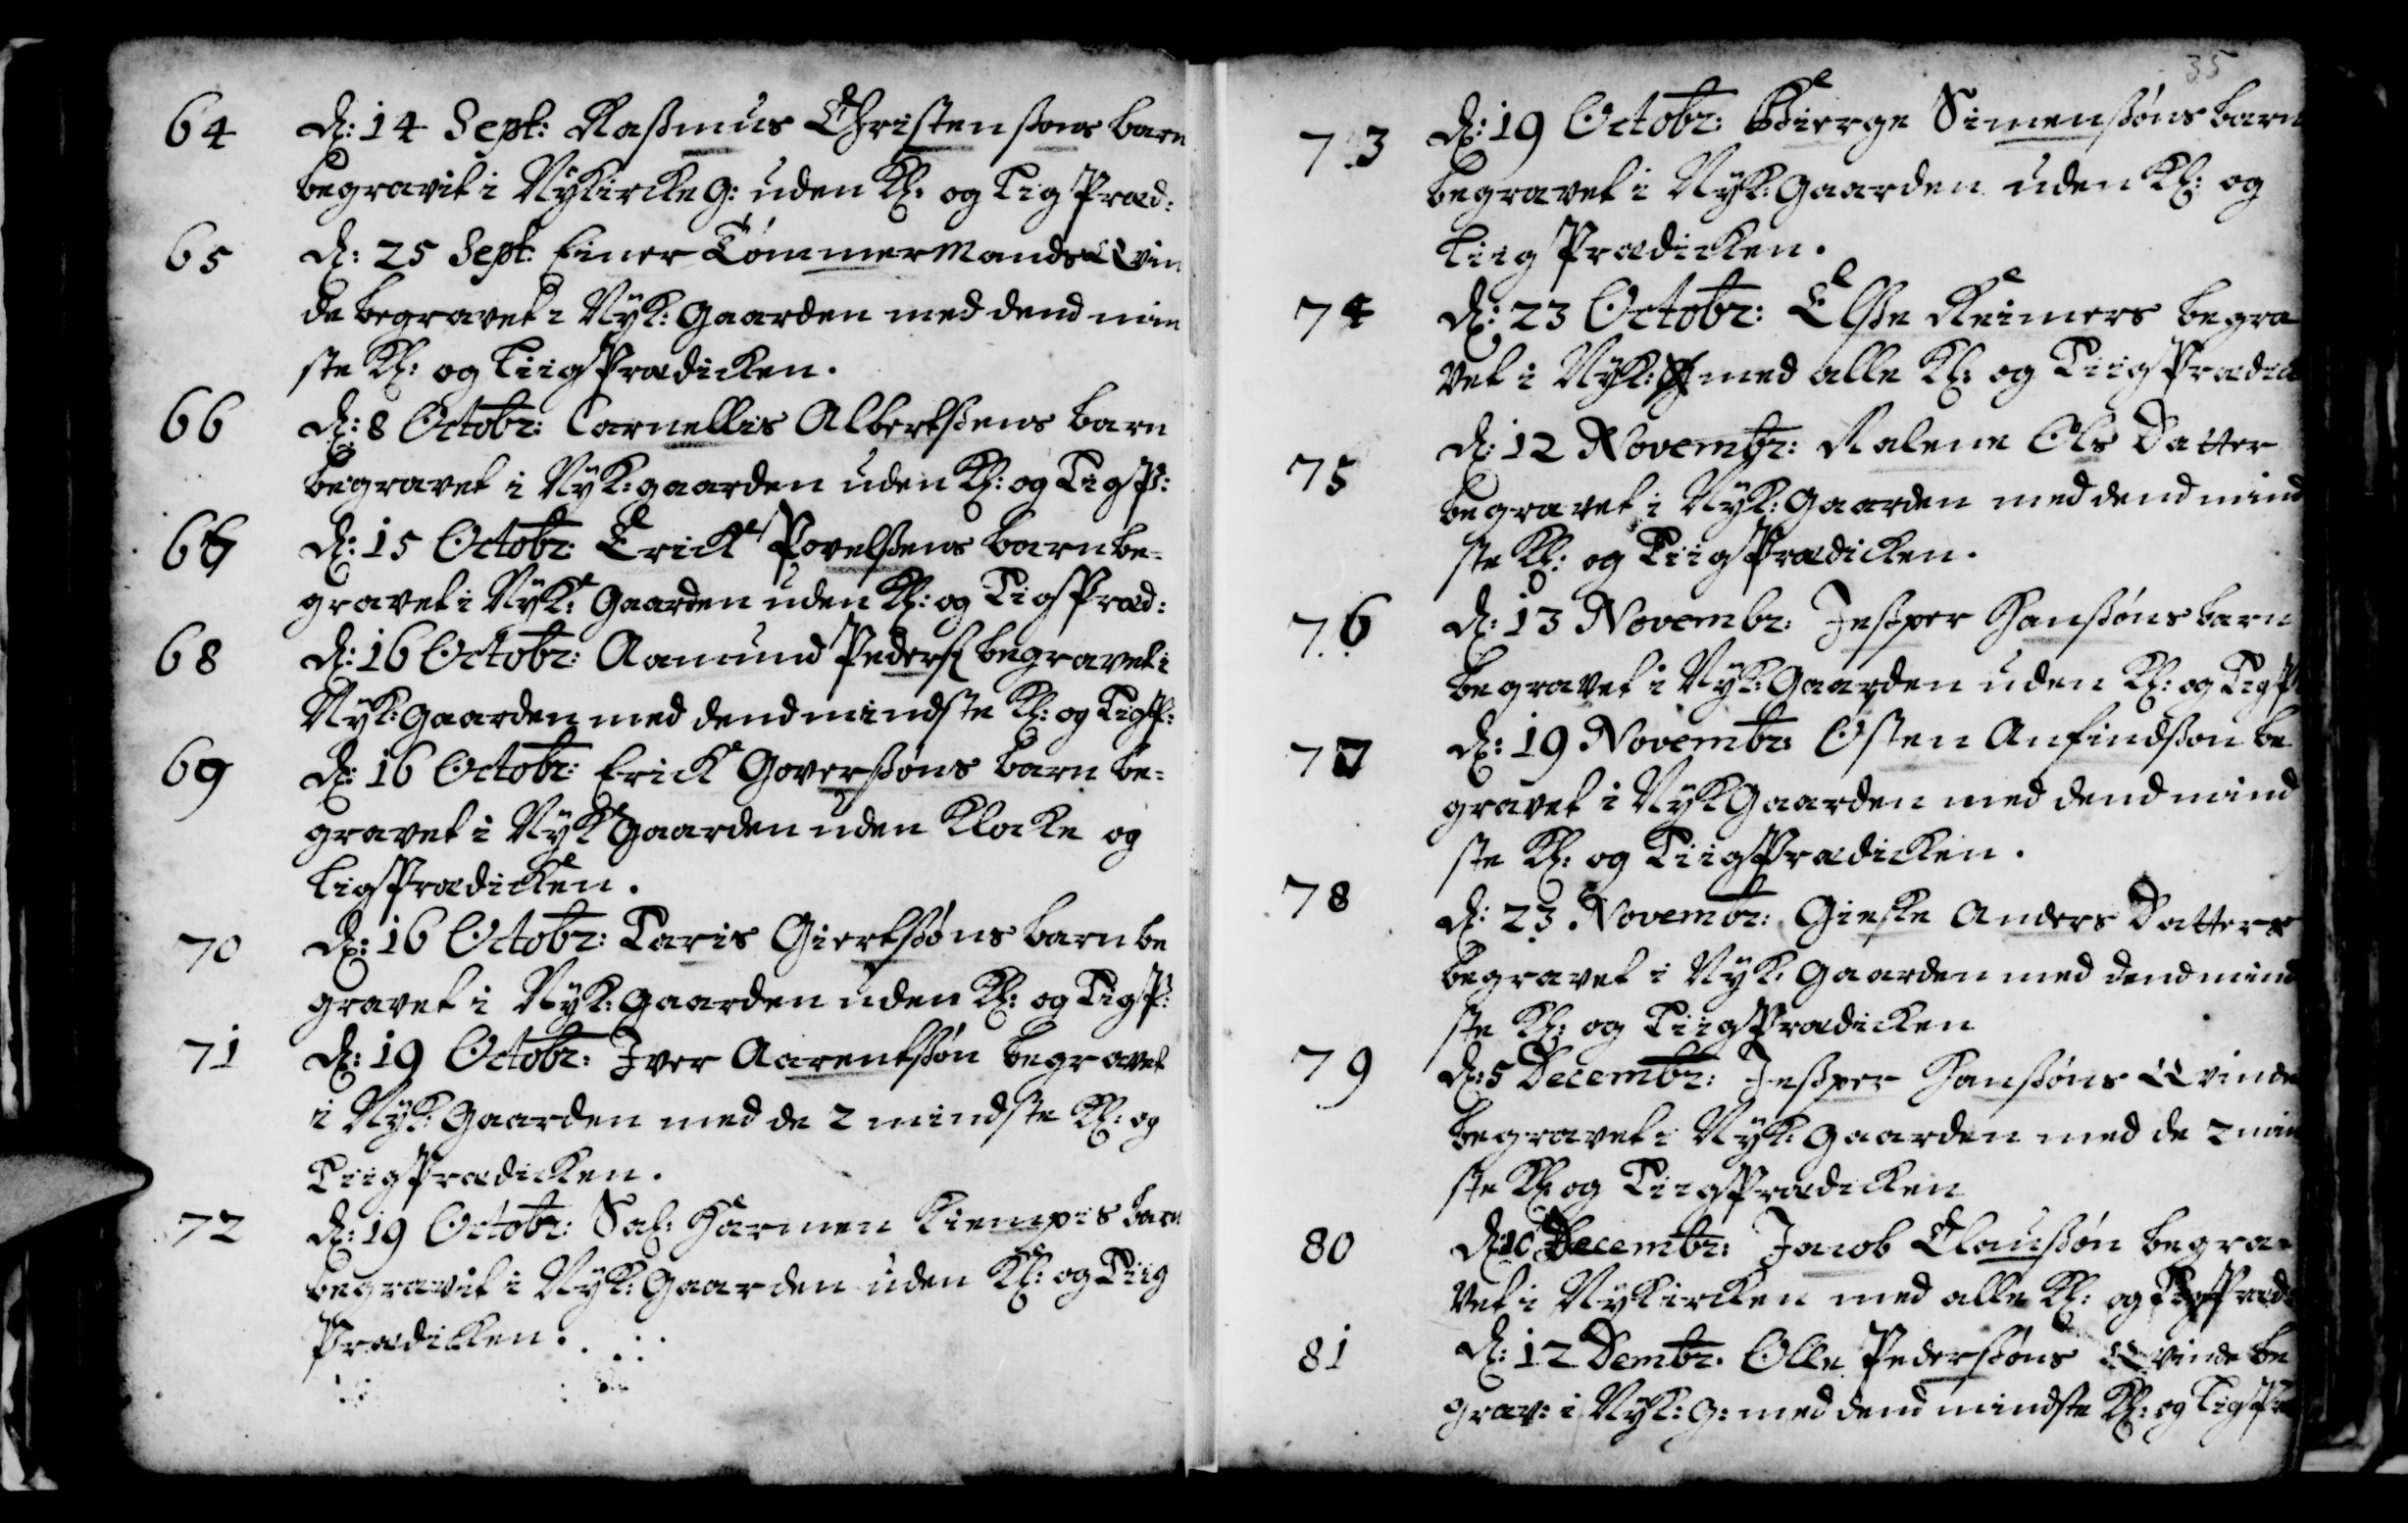 64 d: 14 Sept: Rasmus Christensøns barn
begravit i Nykircke g: uden Kl: og Lig Præd:
65 d: 25 Sept: Einer Tømmermands Qvin
de begravet i Nyk: gaarden med dend min
ste Kl: og Liig Prædicken.
66 d: 8 Octobr: Carnellis Albertsßens barn
begravet i Nyk: gaarden uden Kl: og Lig P:
67 d: 15 Octobr: Erick Povelßens barn be-
gravet i Nyk: Gaarden uden Kl: og Lig Præd:
68 d: 16 Octobr: Aamund Peders: begravet i
Nyk: Gaarden med dend mindste Kl: og Lig P:
69 d: 16 Octobr: Erick Goverßøns barn be-
gravet i Nyk: Gaarden uden Klocke og
Lig Prædicken.
70 d: 16 Octobr: Laris Giertßøns barn be
gravet i Nyk: gaarden uden Kl: og Lig P:
71 d: 19 Octobr: Iver Aarentßøn begravet
i Nyk: Gaarden med de 2 mindste Kl: og
Liig Prædicken.
72 d: 19 Octobr: Sal: Harmen Kiempis barn
begravit i Nyk: Gaarden uden Kl: og Liig
Prædicken.
35
73 d: 19 Octobr: Børge Simensßøns barn
begravet i Nyk: gaarden uden Kl: og
Liig Prædicken.
74 d: 23 Octobr: Elße Reimers begra
vet i Nyk: med alle Kl: og Liig Prædick
75 d: 12 Novembr: Malene Ols Datter
begravet i Nyk: Gaarden med dend mind
ste Kl: og Liig Prædicken.
76 d: 13 Novembr: Jesper Hanßøns barn
begravet i Nyk: Gaarden uden Kl: og Lig P
77 d: 19 Novembr: Østen Anfindßøn be
gravet i Nyk Gaarden med dend mind
ste Kl: og Liig Prædicken.
78 d: 23 Novembr: Gieske Anders Datter
begravet i Nyk: Gaarden med dend mind
ste Kl: og Liig Prædicken
79 d: 5 Decembr: Jesper Hanßøns Qvinde
begravet i Nyk: gaarden med de 2 min
ste Kl: og Liig Prædicken
80 d: 10 Decembr: Jacob Claußøn begra-
vet i Nykircken med alle Kl: og Lig Præd:
81 d: 12 Dembr: Olle Pederßøns Qvinde be
grav: i Nyk: g: med dend mindste Kl: og Lig Præ